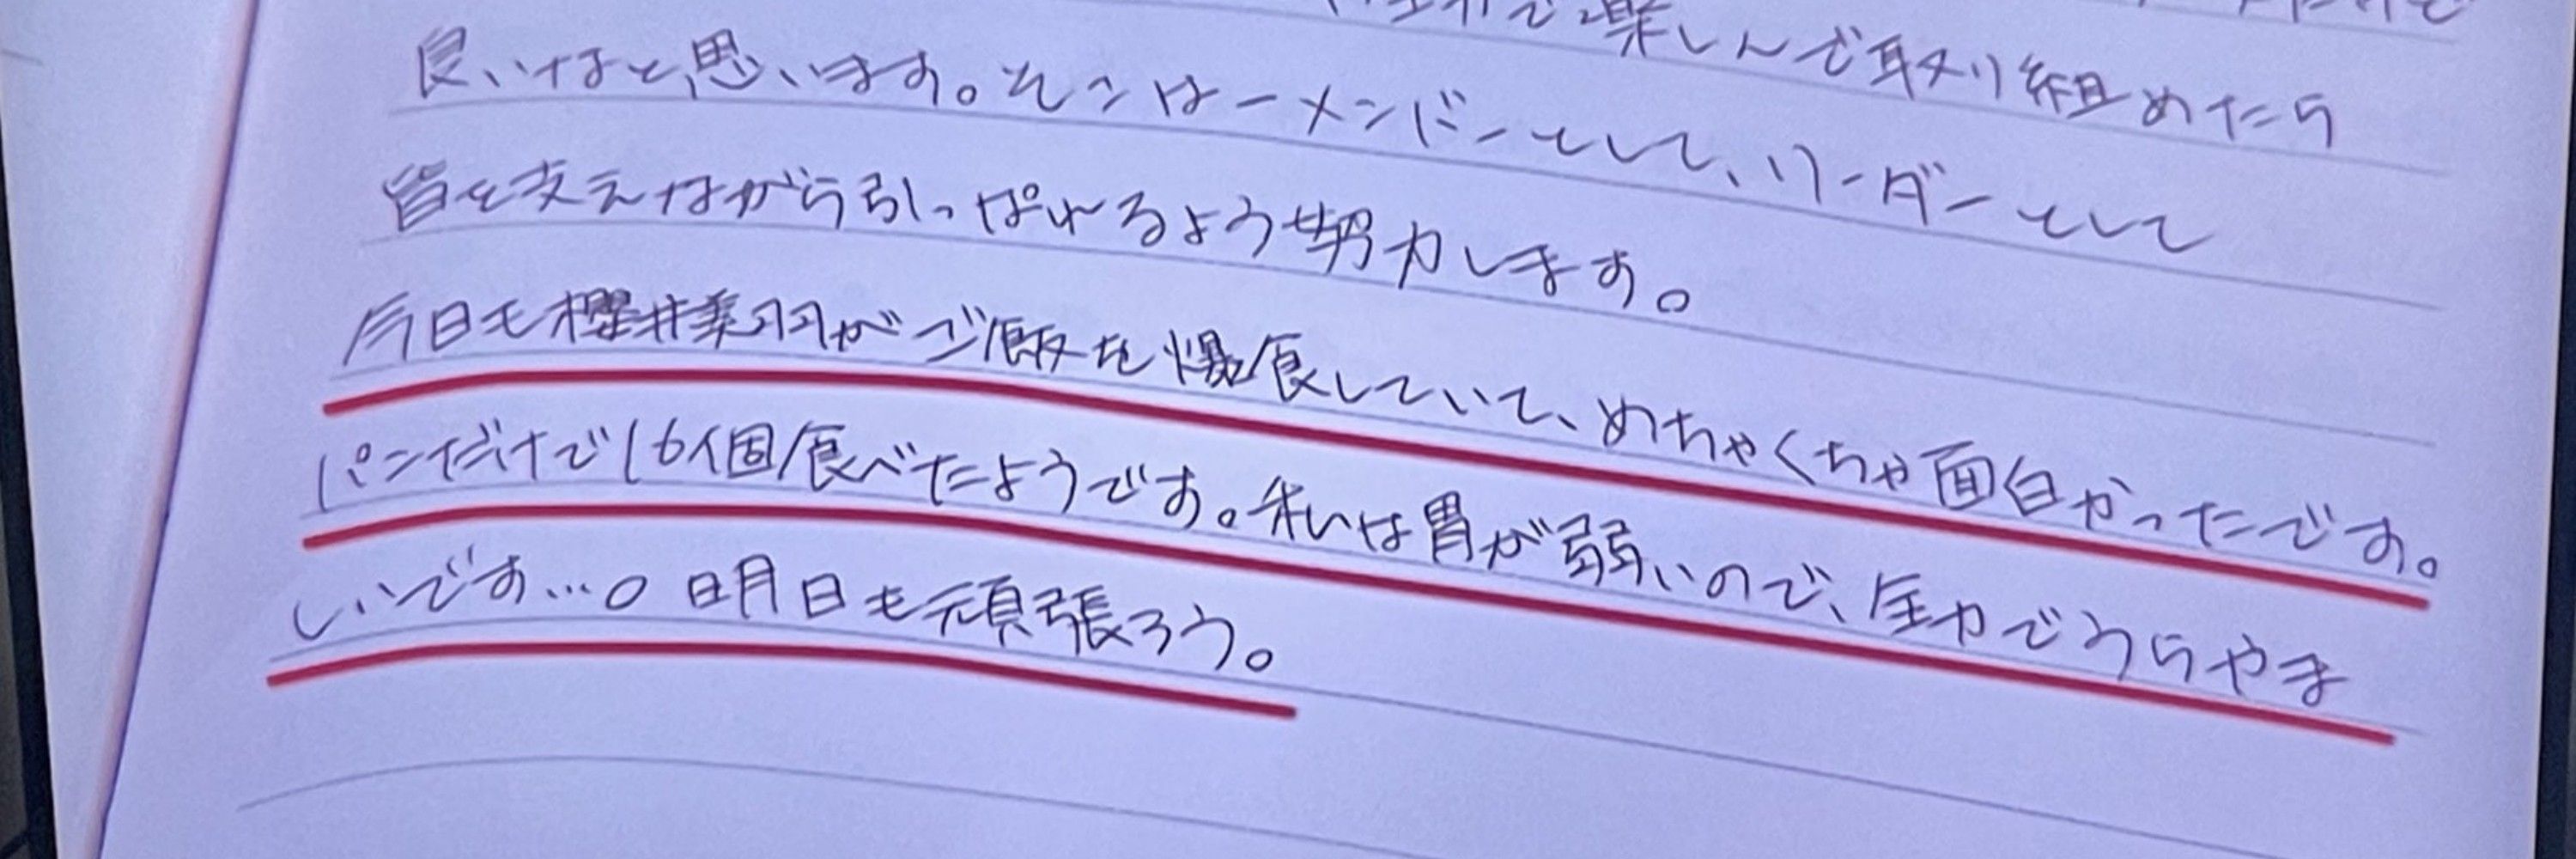 で楽しんで取り組めたら
良いなと思います。そこは一メンバーとして、リーダーとして
皆を支えながら引っぱれるよう努力します。
今日も櫻井美羽がご飯を爆食していて、めちゃくちゃ面白かったです。
パンだけで16個食べたようです。私は胃が弱いので、全力でうらやま
しいです…。明日も頑張ろう。